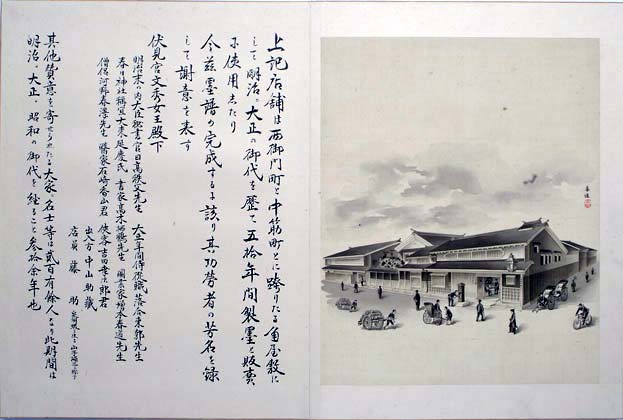 上記店舗は西御門町と中筋町とに跨りたる角屋敷に
して明治、大正の御代を歴て五拾年間製墨と販売
に使用したり
今茲墨譜の完成するに該り其功労者の芳名を録
して謝意を表す
伏見宮文秀女王殿下
明治末の内大臣秘書官日高秩父先生 大正年間侍従職落合東郭先生
春日神社禰宜大東延慶氏 書家高木 先生 図案家 春道先生
僧侶河野春 先生 勝家石崎香山君 侠客吉田 郎君
出入方 中山助蔵
店員 藤 助
其他賛意を寄せられたる大家、名士等は弐百有餘人なり此期間は
明治、大正、昭和の御代を経ること参拾余年也